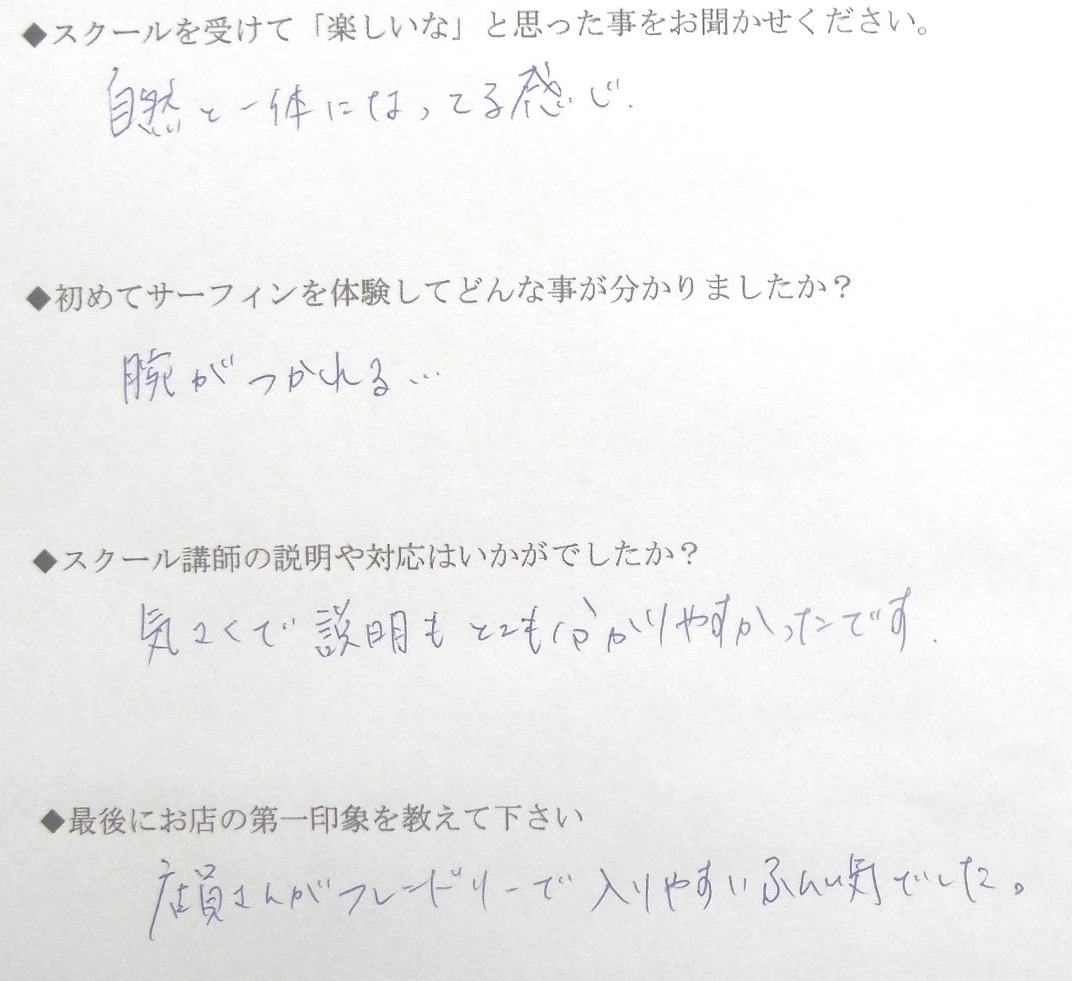 ◆スクールを受けて「楽しいな」と思った事をお聞かせください。
自然と一体になってる感じ.
◆初めてサーフィンを体験してどんな事が分かりましたか？
腕がつかれる…
◆スクール講師の説明や対応はいかがでしたか？
気さくで説明もとても分かりやすかったです.
◆最後にお店の第一印象を教えて下さい
店員さんがフレンドリーで入りやすいふんい気でした。